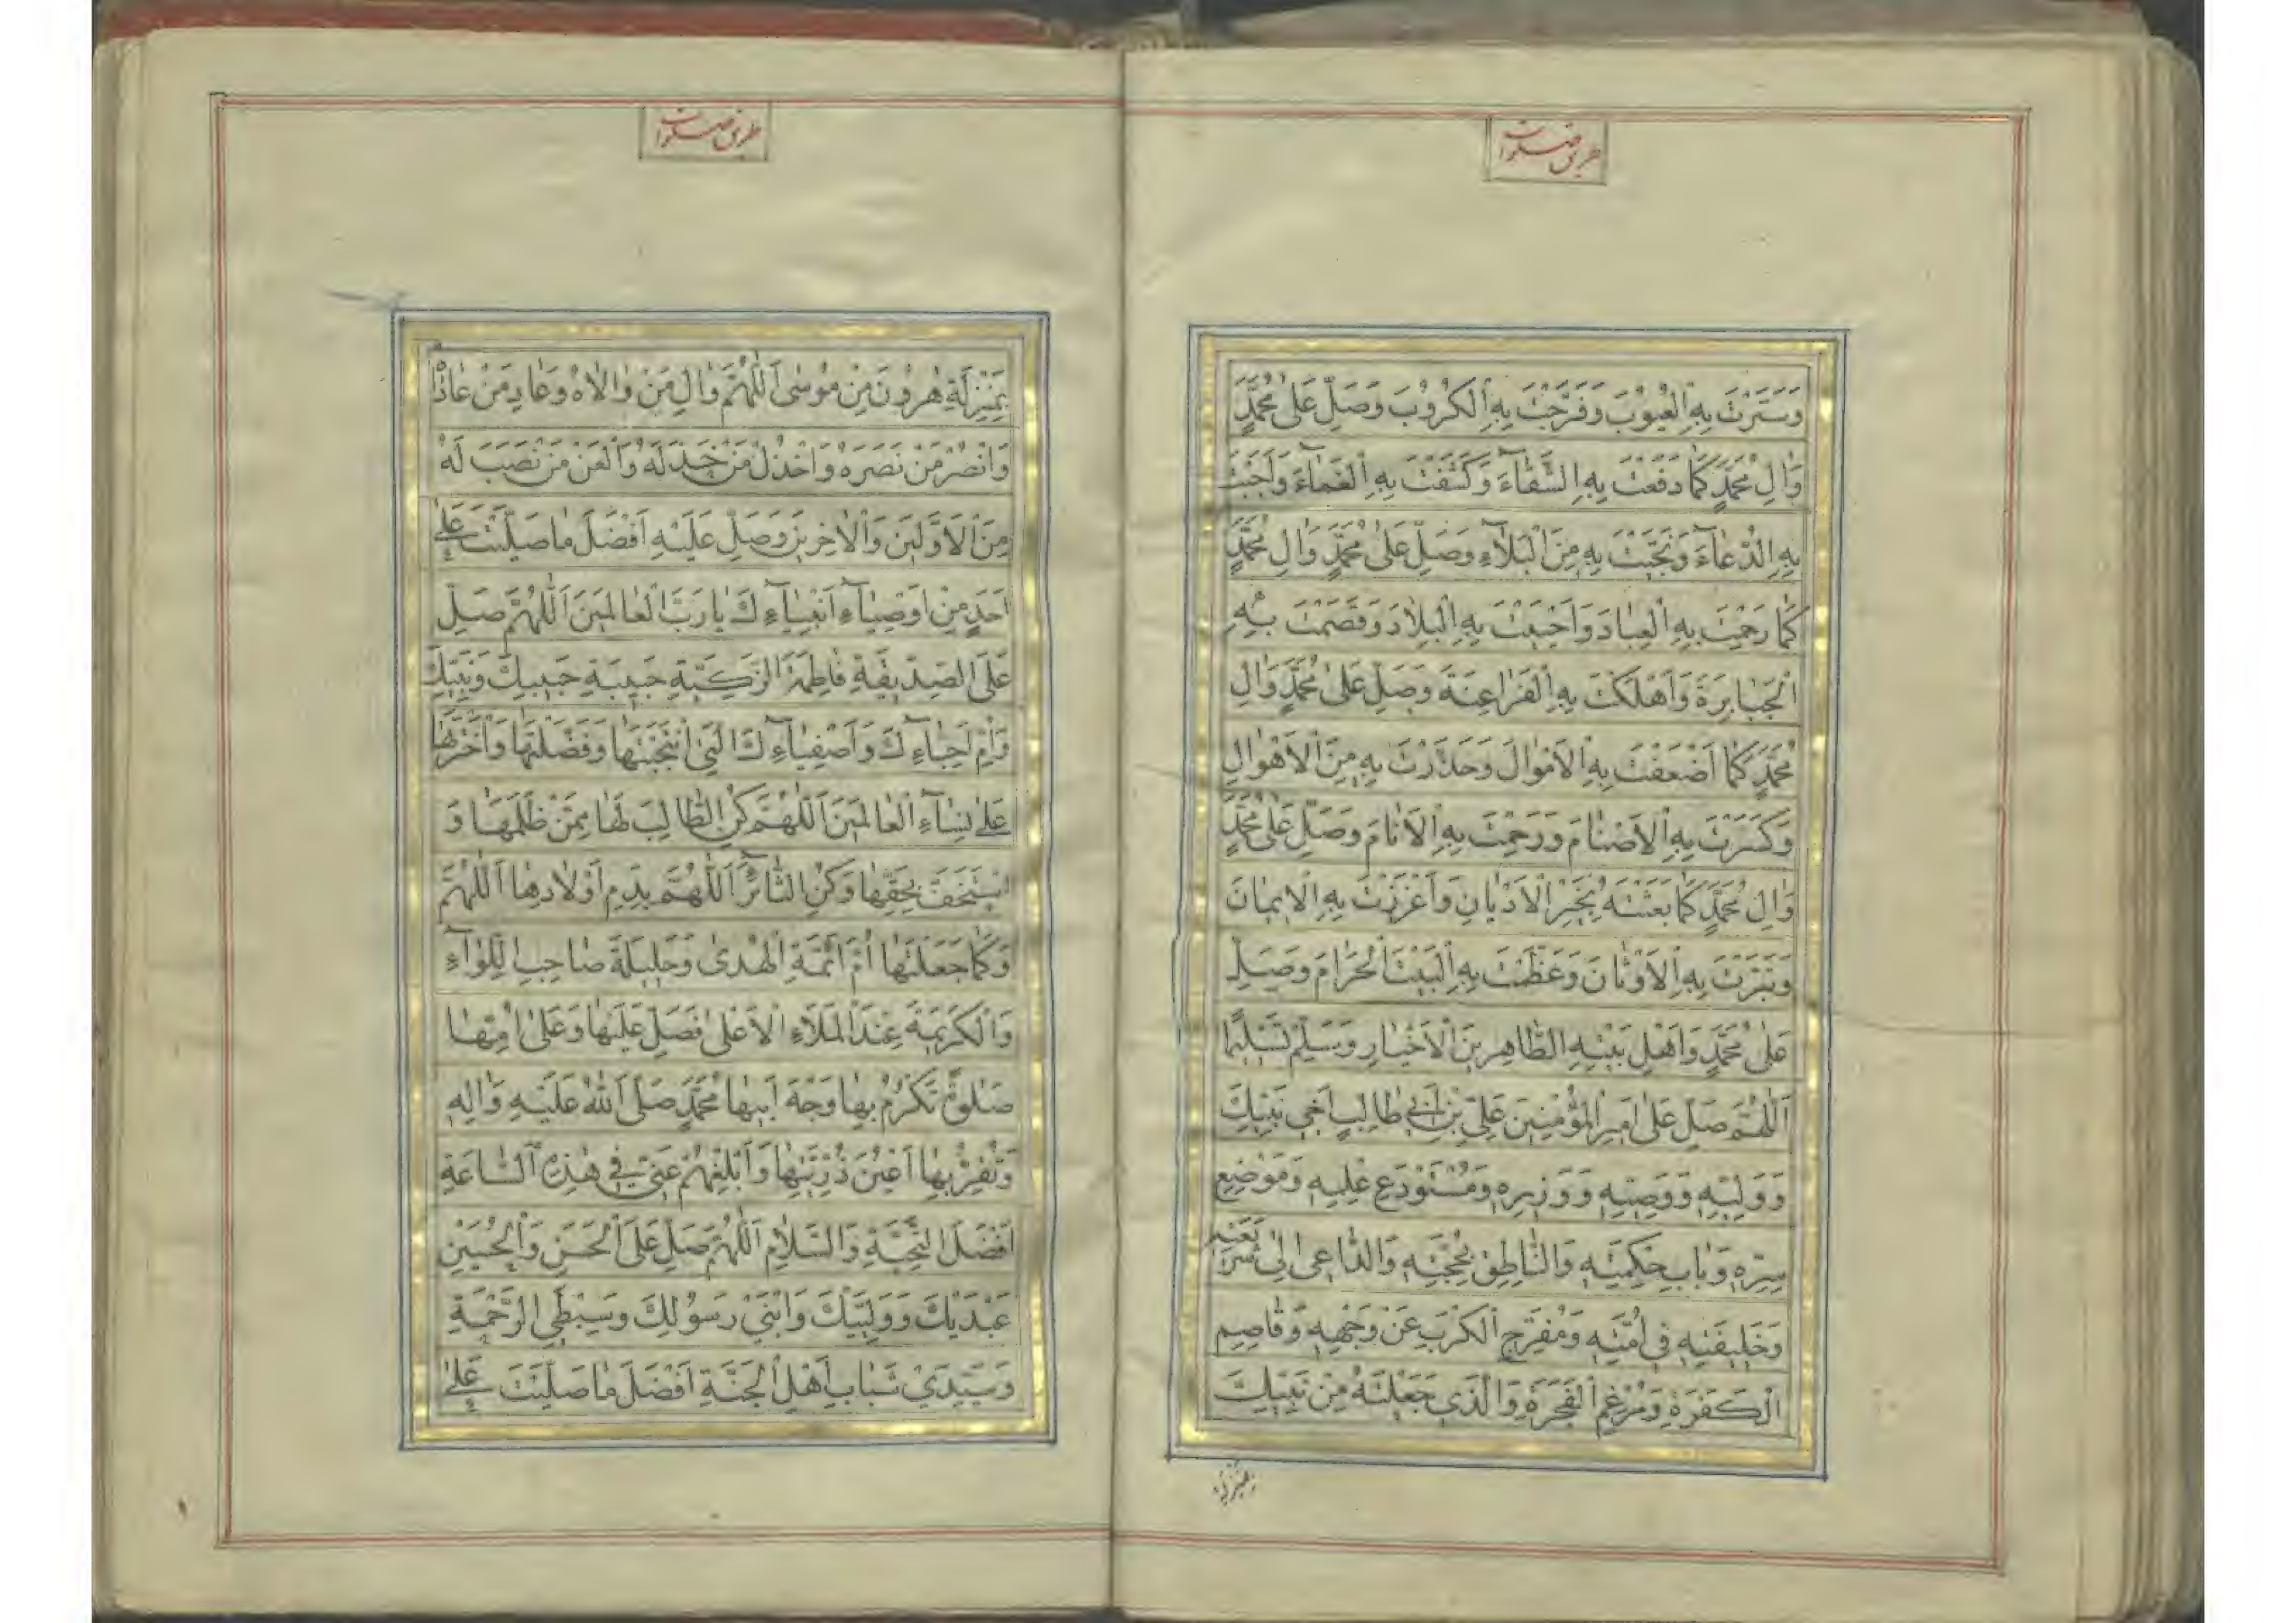 طریق صلوات
وَسَتَرْتَ بِهِ الْعُيُوبَ وَفَرَّجْتَ بِهِ الْكُرُوبَ وَصَلِّ عَلٰى مُحَمَّدٍ
وَاٰلِ مُحَمَّدٍ كَمٰا دَفَعْتَ بِهِ الشَّقٰآءَ وَكَشَفْتَ بِهِ الْغَمٰآءَ وَاَجَبْتَ
بِهِ الدُّعٰآءَ وَنَجَّيْتَ بِهِ مِنَ الْبَلآءِ وَصَلِّ عَلٰى مُحَمَّدٍ وَاٰلِ مُحَمَّدٍ
كَمٰا رَحِمْتَ بِهِ الْعِبٰادَ وَاَحْيَيْتَ بِهِ الْبِلاٰدَ وَقَصَمْتَ بِهِ
الْجَبٰابِرَةَ وَاَهْلَكْتَ بِهِ الْفَرٰاعِنَةَ وَصَلِّ عَلٰى مُحَمَّدٍ وَاٰلِ
مُحَمَّدٍ كَمٰا اَضْعَفْتَ بِهِ الْاَمْوٰالَ وَحَذَّرْتَ بِهِ مِنَ الْاَهْوٰالِ
وَكَسَرْتَ بِهِ الْاَصْنٰامَ وَرَحِمْتَ بِهِ الْاَنٰامَ وَصَلِّ عَلٰى مُحَمَّدٍ
وَاٰلِ مُحَمَّدٍ كَمٰا بَعَثْتَهُ بِخَيْرِ الْاَدْيٰانِ وَاَعْزَزْتَ بِهِ الْايمٰانَ
وَتَبَّرْتَ بِهِ الْاَوْثٰانَ وَعَظَّمْتَ بِهِ الْبَيْتَ الْحَرٰامَ وَصَلِّ
عَلٰى مُحَمَّدٍ وَاَهْلِ بَيْتِهِ الطّٰاهِرِينَ الْاَخْيٰارِ وَسَلِّمْ تَسْلِيمًا
اَللّٰهُمَّ صَلِّ عَلٰى اَمِيرِ الْمُؤْمِنِينَ عَلِيِّ بْنِ اَبِي طٰالِبٍ اَخِي نَبِيِّكَ
وَوَلِيِّهِ وَوَصِيِّهِ وَوَزِيرِهِ وَمُسْتَوْدَعِ عِلْمِهِ وَمَوْضِعِ
سِرِّهِ وَبٰابِ حِكْمَتِهِ وَالنّٰاطِقِ بِحُجَّتِهِ وَالدّٰاعِى اِلٰى شَرٰيعَتِهِ
وَخَلِيفَتِهِ فِى اُمَّتِهِ وَمُفَرِّجِ الْكَرْبَ عَنْ وَجْهِهِ وَقٰاصِمِ
الْكَفَرَةِ وَمُرْغِمِ الْفَجَرَةِ وَالَّذِي جَعَلْتَهُ مِنْ نَبِيِّكَ
بمنزلة
طریق صلوات
بِمَنْزِلَةِ هٰرُونَ مِنْ مُوسٰى اَللّٰهُمَّ وٰالِ مَنْ وٰالاٰهُ وَعٰادِ مَنْ عٰادٰاهُ
وَانْصُرْ مَنْ نَصَرَهُ وَاخْذُلْ مَنْ خَذَلَهُ وَالْعَنْ مَنْ نَصَبَ لَهُ
مِنَ الْاَوَّلِينَ وَالْاٰخِرِينَ وَصَلِّ عَلَيْهِ اَفْضَلَ مٰا صَلَّيْتَ عَلٰى
اَحَدٍ مِنْ اَوْصِيٰآءِ اَنْبِيٰآءِكَ يٰا رَبَّ الْعٰالَمِينَ اَللّٰهُمَّ صَلِّ
عَلَى الصِّدِّيقَةِ فٰاطِمَةَ الزَّكِيَّةِ حَبِيبَةِ حَبِيبِكَ وَنَبِيِّكَ
وَاُمِّ اَحِبّٰآءِكَ وَاَصْفِيٰآءِكَ الَّتِي انْتَجَبْتَهٰا وَفَضَّلْتَهٰا وَاخْتَرْتَهٰا
عَلٰى نِسٰآءِ الْعٰالَمِينَ اَللّٰهُمَّ كُنِ الطّٰالِبَ لَهٰا مِمَّنْ ظَلَمَهٰا وَ
اسْتَخَفَّ بِحَقِّهٰا وَكُنِ الثّٰائِرَ اَللّٰهُمَّ بِدَمِ اَوْلاٰدِهٰا اَللّٰهُمَّ
وَكَمٰا جَعَلْتَهٰا اُمَّ اَئِمَّةِ الْهُدٰى وَحَلِيلَةَ صٰاحِبِ اللِّوٰآءِ
وَالْكَرِيمَةَ عِنْدَ الْمَلَاءِ الْاَعْلٰى فَصَلِّ عَلَيْهٰا وَعَلٰى اُمِّهٰا
صَلٰوةً تُكْرِمُ بِهٰا وَجْهَ اَبِيهٰا مُحَمَّدٍ صَلَّى اللّٰهُ عَلَيْهِ وَاٰلِهِ
وَتُقِرُّ بِهٰا اَعْيُنَ ذُرِّيَّتِهٰا وَاَبْلِغْهُمْ عَنِّي فِي هٰذِهِ السّٰاعَةِ
اَفْضَلَ التَّحِيَّةِ وَالسَّلاٰمِ اَللّٰهُمَّ صَلِّ عَلَى الْحَسَنِ وَالْحُسَيْنِ
عَبْدَيْكَ وَوَلِيَّيْكَ وَابْنَيْ رَسُولِكَ وَسِبْطَيِ الرَّحْمَةِ
وَسَيِّدَيْ شَبٰابِ اَهْلِ الْجَنَّةِ اَفْضَلَ مٰا صَلَّيْتَ عَلٰى